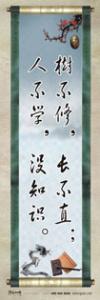 樹不修，长不直；
人不学，没知识。